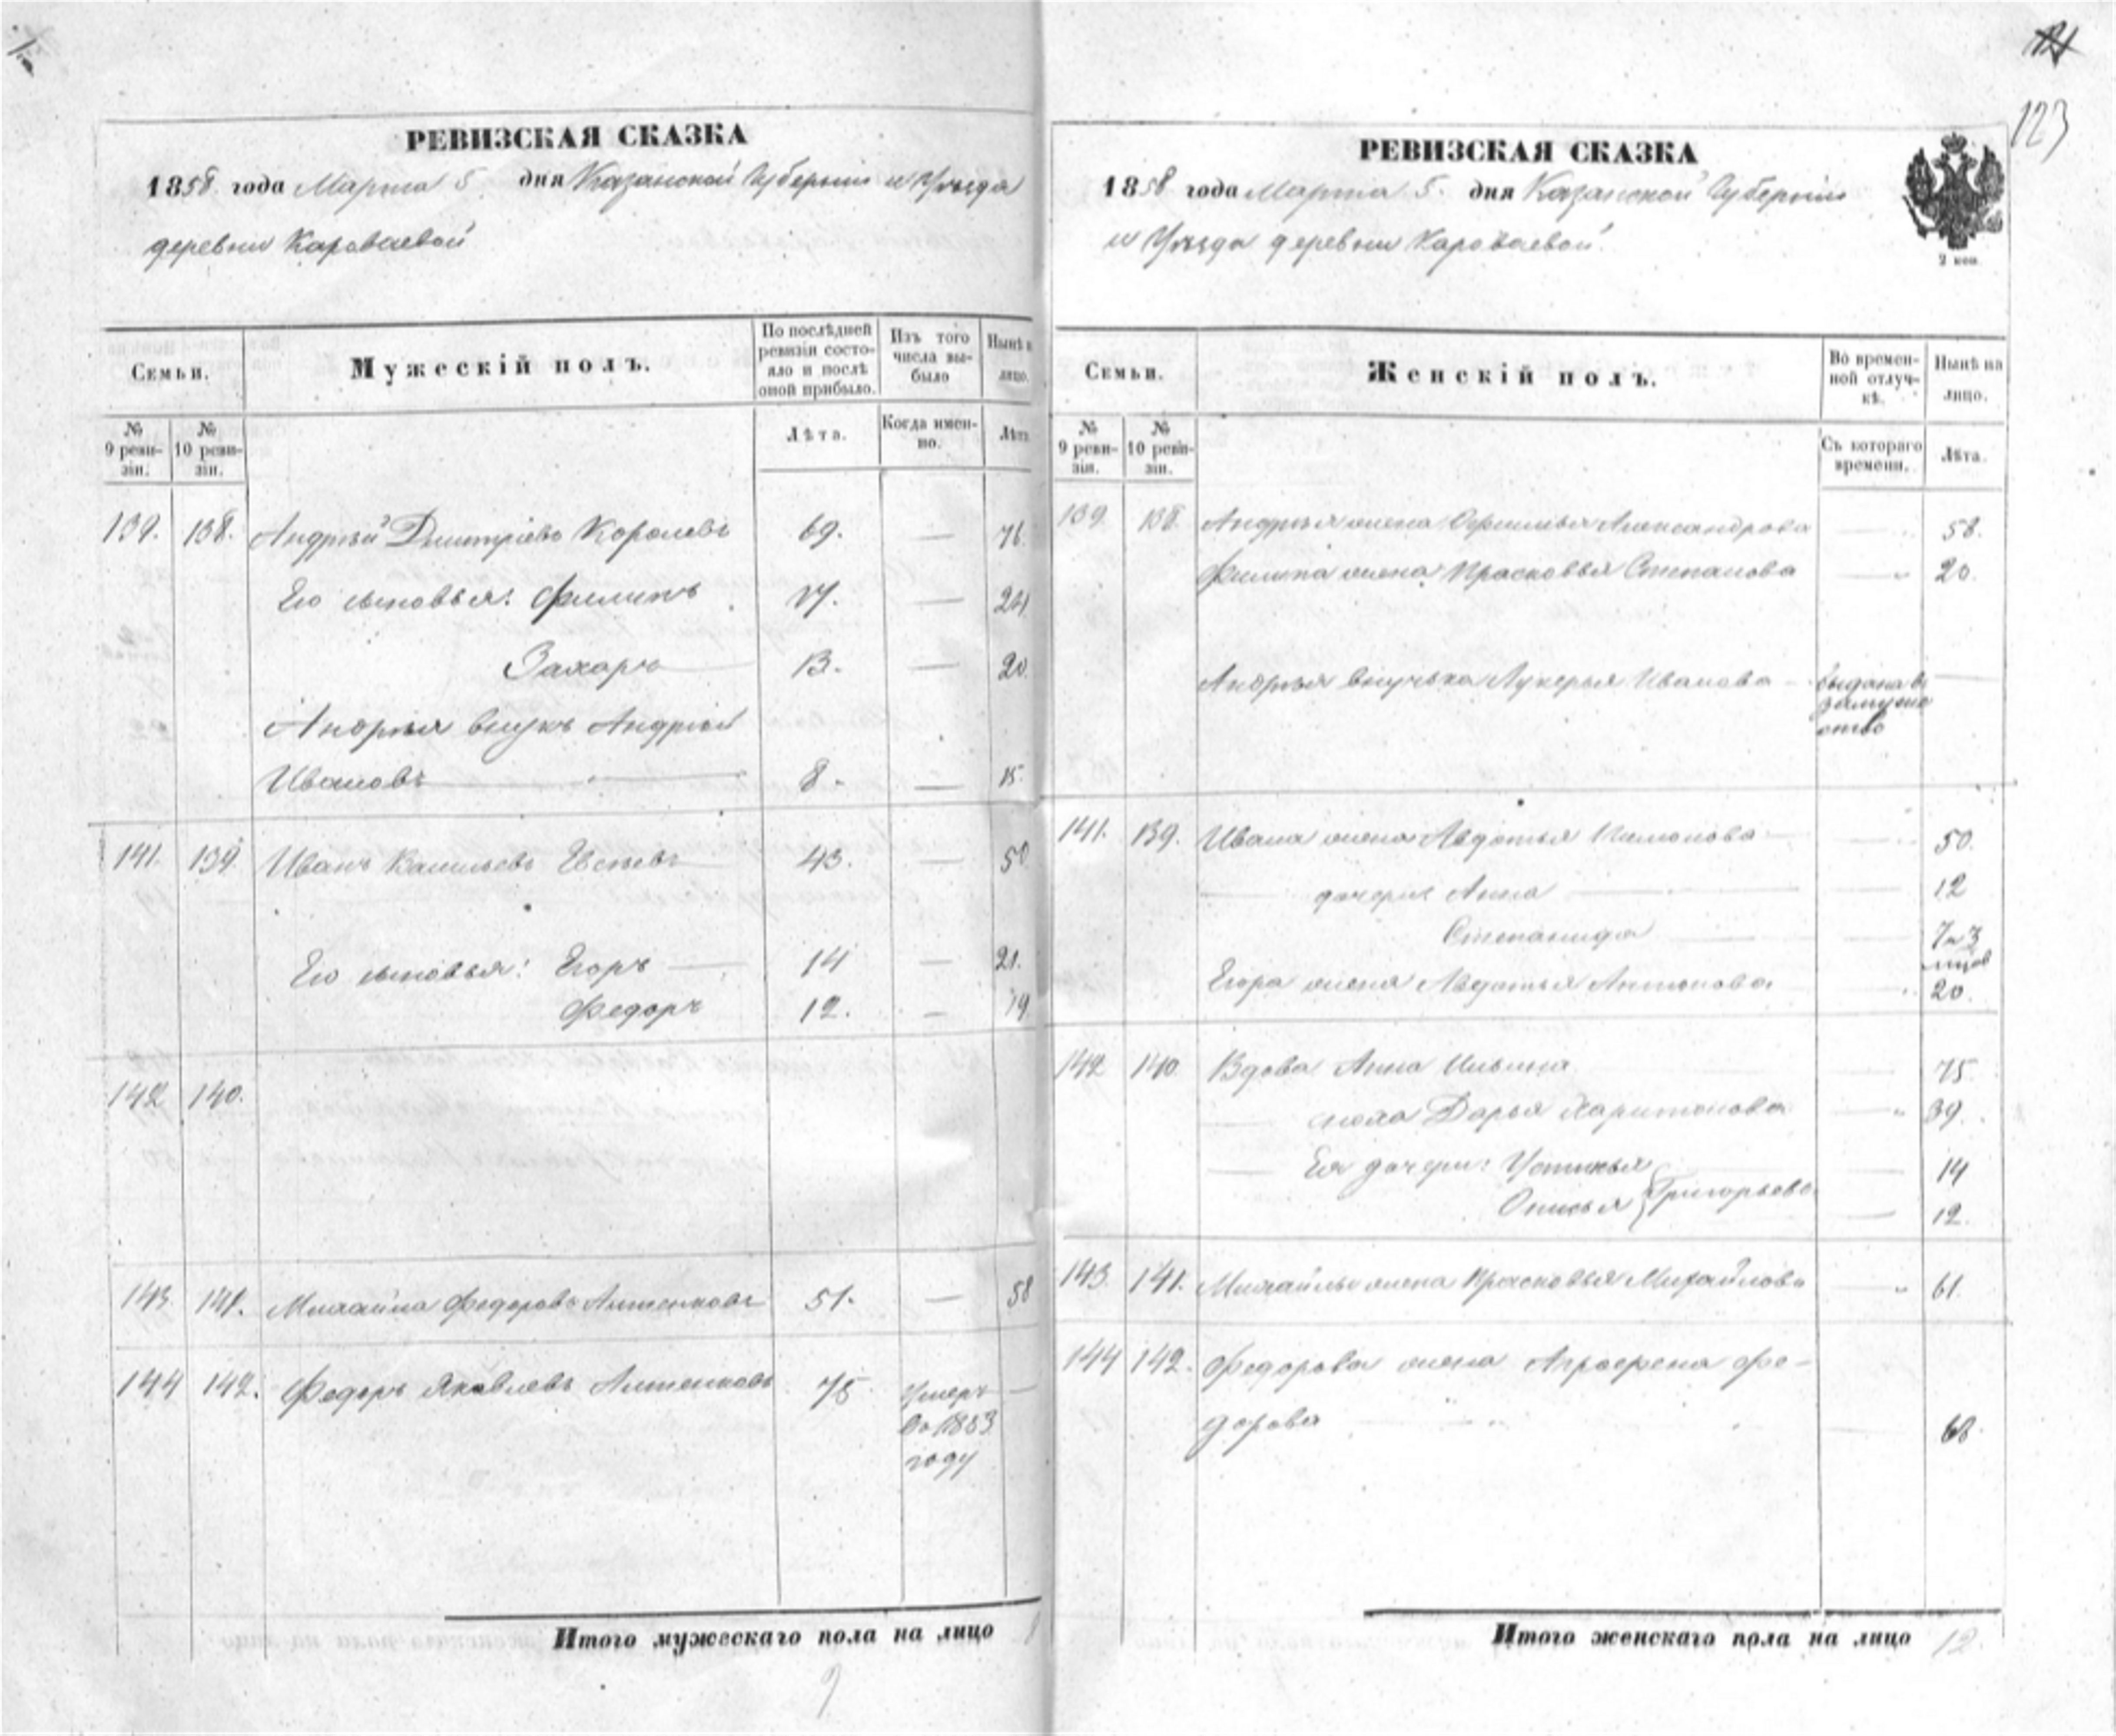 123
РЕВИЗСКАЯ СКАЗКА
1858 года Марта 5 дня Казанской Губерніи и Уѣзда
деревни Караваевой
Семьи.
Мужескій полъ.
По послѣдней ревизіи состояло и послѣ оной прибыло.
Изъ того числа выбыло
Нынѣ на лицо.
№ 9 ревизіи.
№ 10 ревизіи.
Лѣта.
Когда именно.
Лѣта
139. 138. Андрей Дмитріевъ Королевъ 69. — 76.
Его сыновья: Филипъ 17. — 24
Захаръ 13. — 20
Андрея внукъ Андрей
Ивановъ 8. — 15.
141. 139. Иванъ Васильевъ 43. — 50
Его сыновья: Егоръ 14 — 21.
Федоръ 12. — 19
142 140.
143. 141. Михайла Федоровъ 51. — 58
144 142. Федоръ Яковлевъ 75 Умеръ —
во 1853
году
Итого мужескаго пола на лицо
9
РЕВИЗСКАЯ СКАЗКА
1858 года Марта 5. дня Казанской Губерніи
и Уѣзда деревни Караваевой.
2 коп.
Семьи.
Женскій полъ.
Во временной отлучкѣ.
Нынѣ на лицо.
№ 9 ревизіи.
№ 10 ревизіи.
Съ котораго времени.
Лѣта.
139. 138. Андрея жена Александрова — 58.
Филипа жена Прасковья Степанова — 20.
Андрея внучька Лукерья Иванова — выдана в
замуже
ство
141. 139. Ивана жена Авдотья — 50.
дочери: Анна — 12
Степанида — 7 и 3
Егора жена Авдотья Антонова — 20.
142 140. Вдова Анна Ильина — 75
сноха Дарья Харитонова — 39.
Ея дочери: Устинья — 14
Григорьевы
— 12.
143. 141. Михайлы жена Прасковья Михайлова — 61.
144 142. Федорова жена Аграфена Фе-
дорова 68.
Итого женскаго пола на лицо 12.